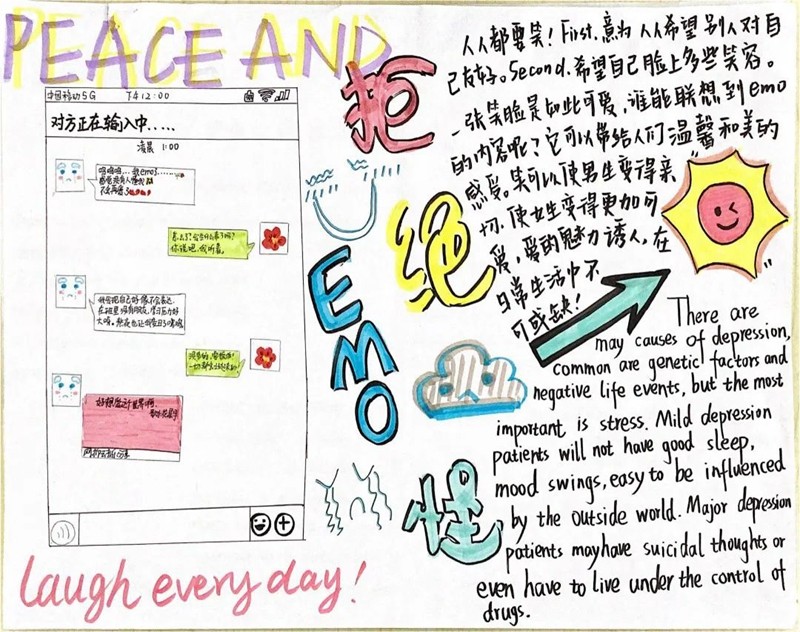 PEACE AND
中国移动5G 下午12:00
对方正在输入中.....
凌晨 1:00
呜呜呜...我emo了
感觉没有人懂我
不会再爱了
你说吧,我听着。
在班里没有朋友,学习压力好
大呀。
好想爱这个世界啊。
laugh every day!
拒
绝
EMO
怪
人人都要笑!First,意为人人希望别人对自
己友好。Second,希望自己脸上多些笑容。
一张笑脸是如此可爱,谁能联想到emo
的内容呢?它可以带给人们温馨和美的
感受。笑可以使男生变得亲
切,使女生变得更加可
爱,爱的魅力诱人,在
日常生活中不
可或缺!
There are
may causes of depression,
common are genetic factors and
negative life events, but the most
important is stress. Mild depression
patients will not have good sleep,
mood swings, easy to be influenced
by the outside world. Major depression
patients may have suicidal thoughts or
even have to live under the control of
drugs.